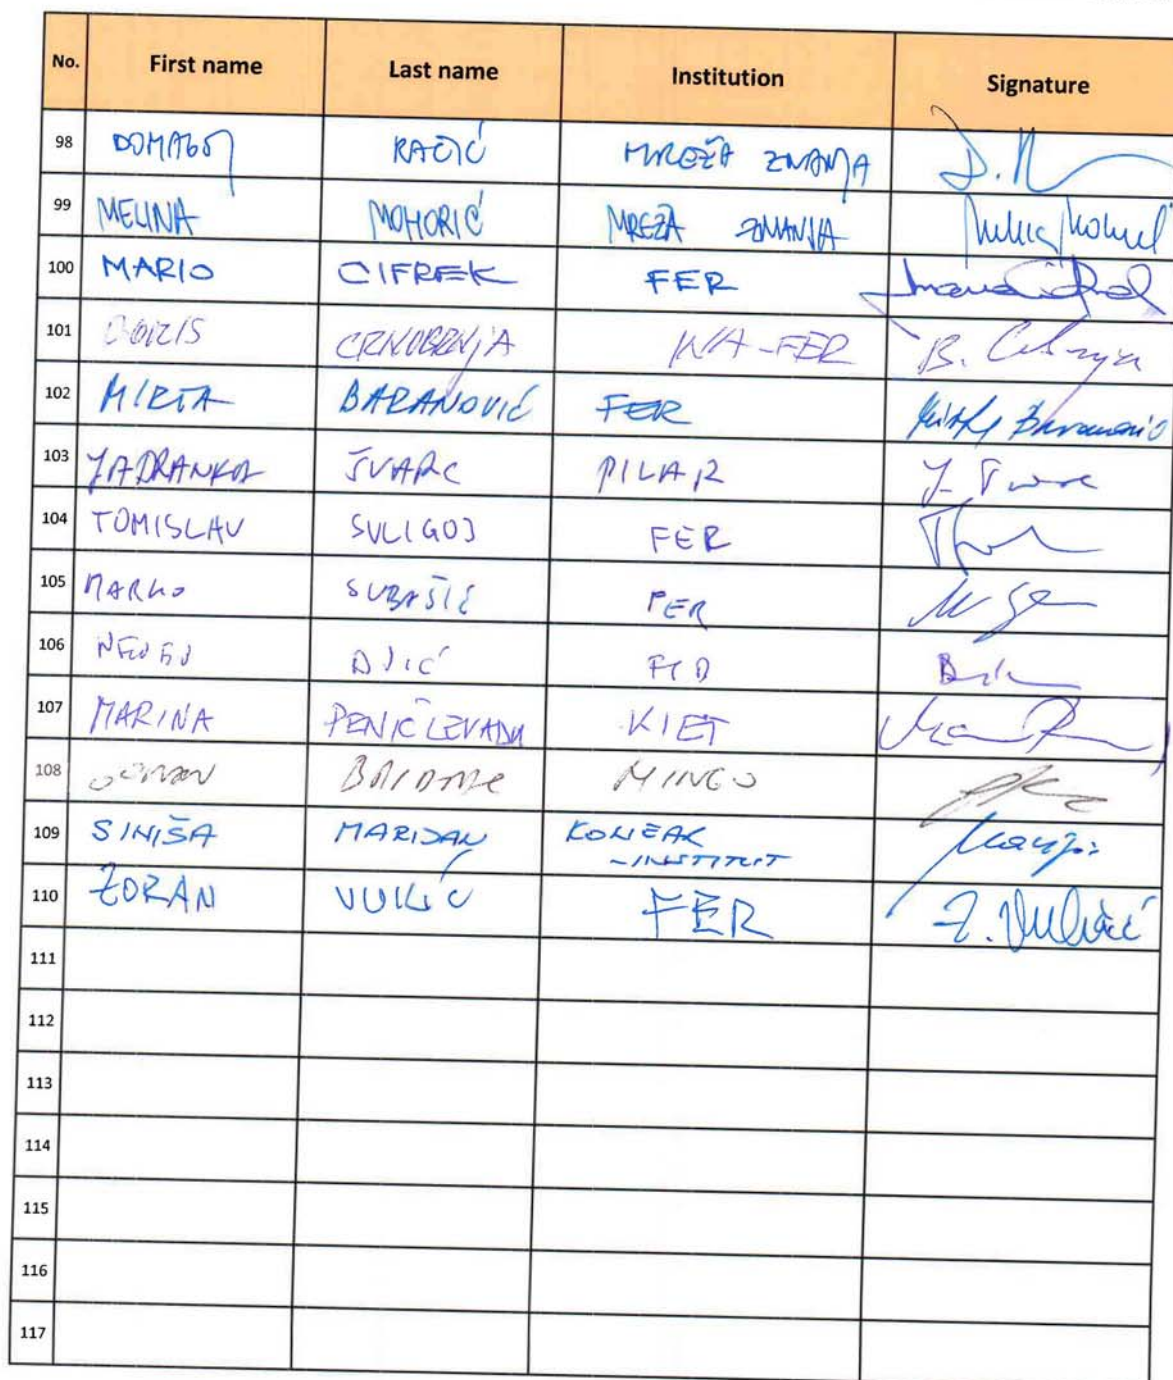 No. First name Last name Institution Signature
98 DOMAGOJ RAČIĆ MREŽA ZNANJA D. R
99 MELINA MOHORIĆ MREŽA ZNANJA
100 MARIO CIFREK FER
101 BORIS CRNOBRNJA INA-FER B.
102 MIRTA BARANOVIĆ FER
103 JADRANKA ŠVARC PILAR J. Švarc
104 TOMISLAV SULIGOJ FER
105 MARKO SUBAŠIĆ FER
106
107 MARINA PENIĆ LEVADA KIET
108 MINGO
109 SINIŠA MARIJAN KONČAR
-INSTITUT
110 ZORAN VUKIĆ FER Z. Vukić
111
112
113
114
115
116
117